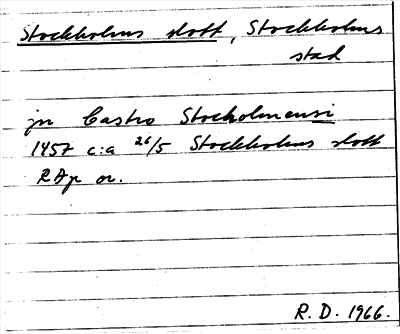 Stockholms slott, Stockholms
stad
in Castro Stocholmensi
1457 c:a 26/5 Stockholms slott
RAp or.
R. D. 1966.